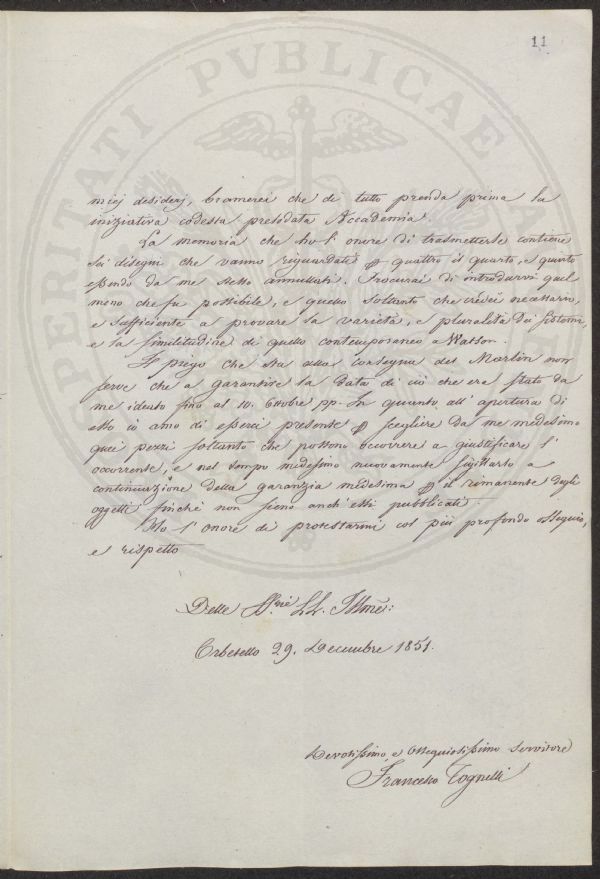 11
PERITATI PVBLICAE
miej desiderj, bramerei che di tutto prenda prima la
iniziativa codesta prelodata Accademia.
La memoria che ho l'onore di trasmetterle contiene
sei disegni che vanno riguardati p quattro il quarto, e quinto
essendo da me stesso annullati. Procurai di introdurvi quel
meno che fu possibile, e quello soltanto che credei necessario,
e sufficiente a provare la varietà, e pluralità dei sistemi,
e la similitudine di quello contemporaneo a Watson.
Il piego che sta alla consegna del Marlin non
serve che a garantire la data di ciò che era stato da
me ideato fino al 10. Ottobre pp. In quanto all'apertura di
esso io amo di esserci presente p scegliere da me medesimo
quei pezzi soltanto che possono occorrere a giustificare l'
occorrente, e nel tempo medesimo nuovamente sigillarlo a
continuazione della garanzia medesima p il rimanente degli
oggetti finchè non sieno anch'essi pubblicati.
Ho l'onore di protestarmi col più profondo ossequio,
e rispetto
Delle SS.rie LL. Illme:
Orbetello 29. Decembre 1851.
Devotissimo, e Ossequiosissimo Servitore
Francesco Tognetti